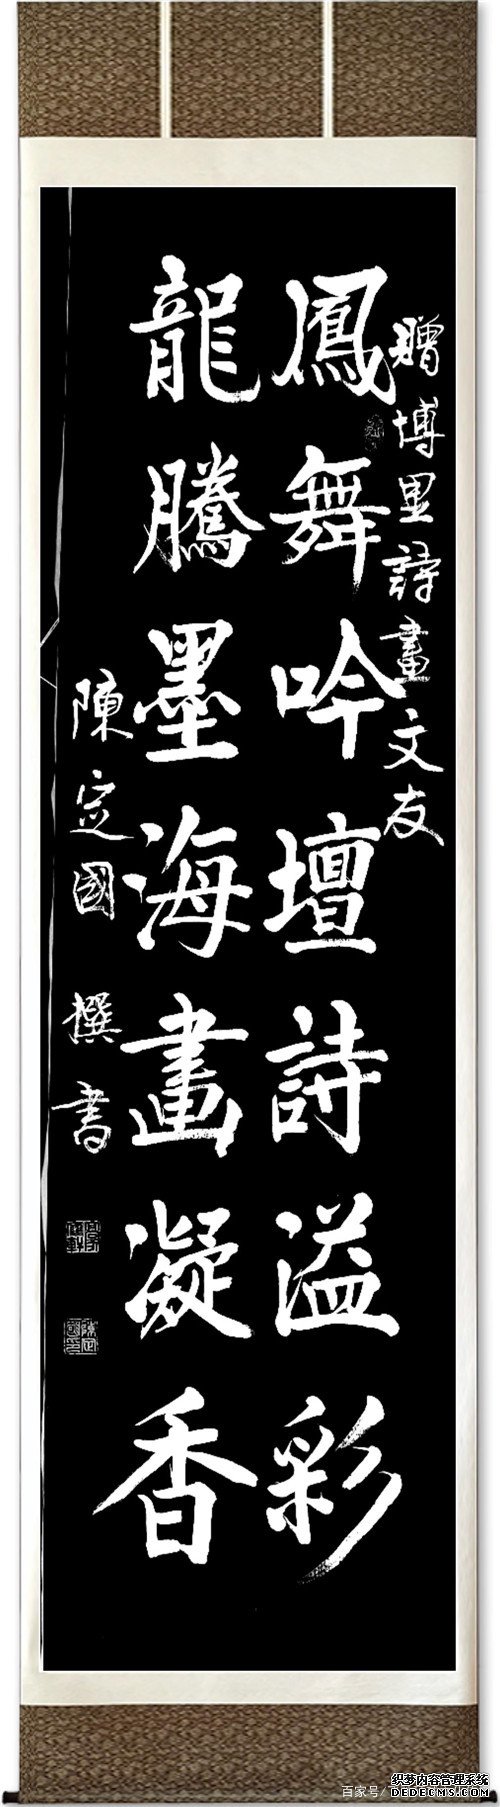 贈博里詩畫文友
鳳舞吟壇詩溢彩
龍騰墨海畫凝香
陳定國 撰書
百家号/
织梦内容管理系统
DEDECMS.COM